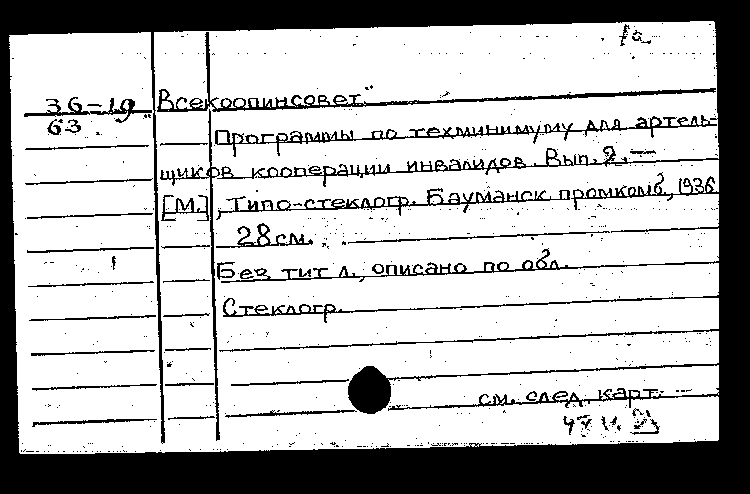 1а
36-19
63
"Всекоопинсовет."
Программы по техминимуму для артель-
щиков кооперации инвалидов. Вып. 2. —
[М.], Типо-стеклогр. Бауманск. промкомб, 1936
28 см.
Без тит л., описано по обл.
Стеклогр.
см. след. карт.